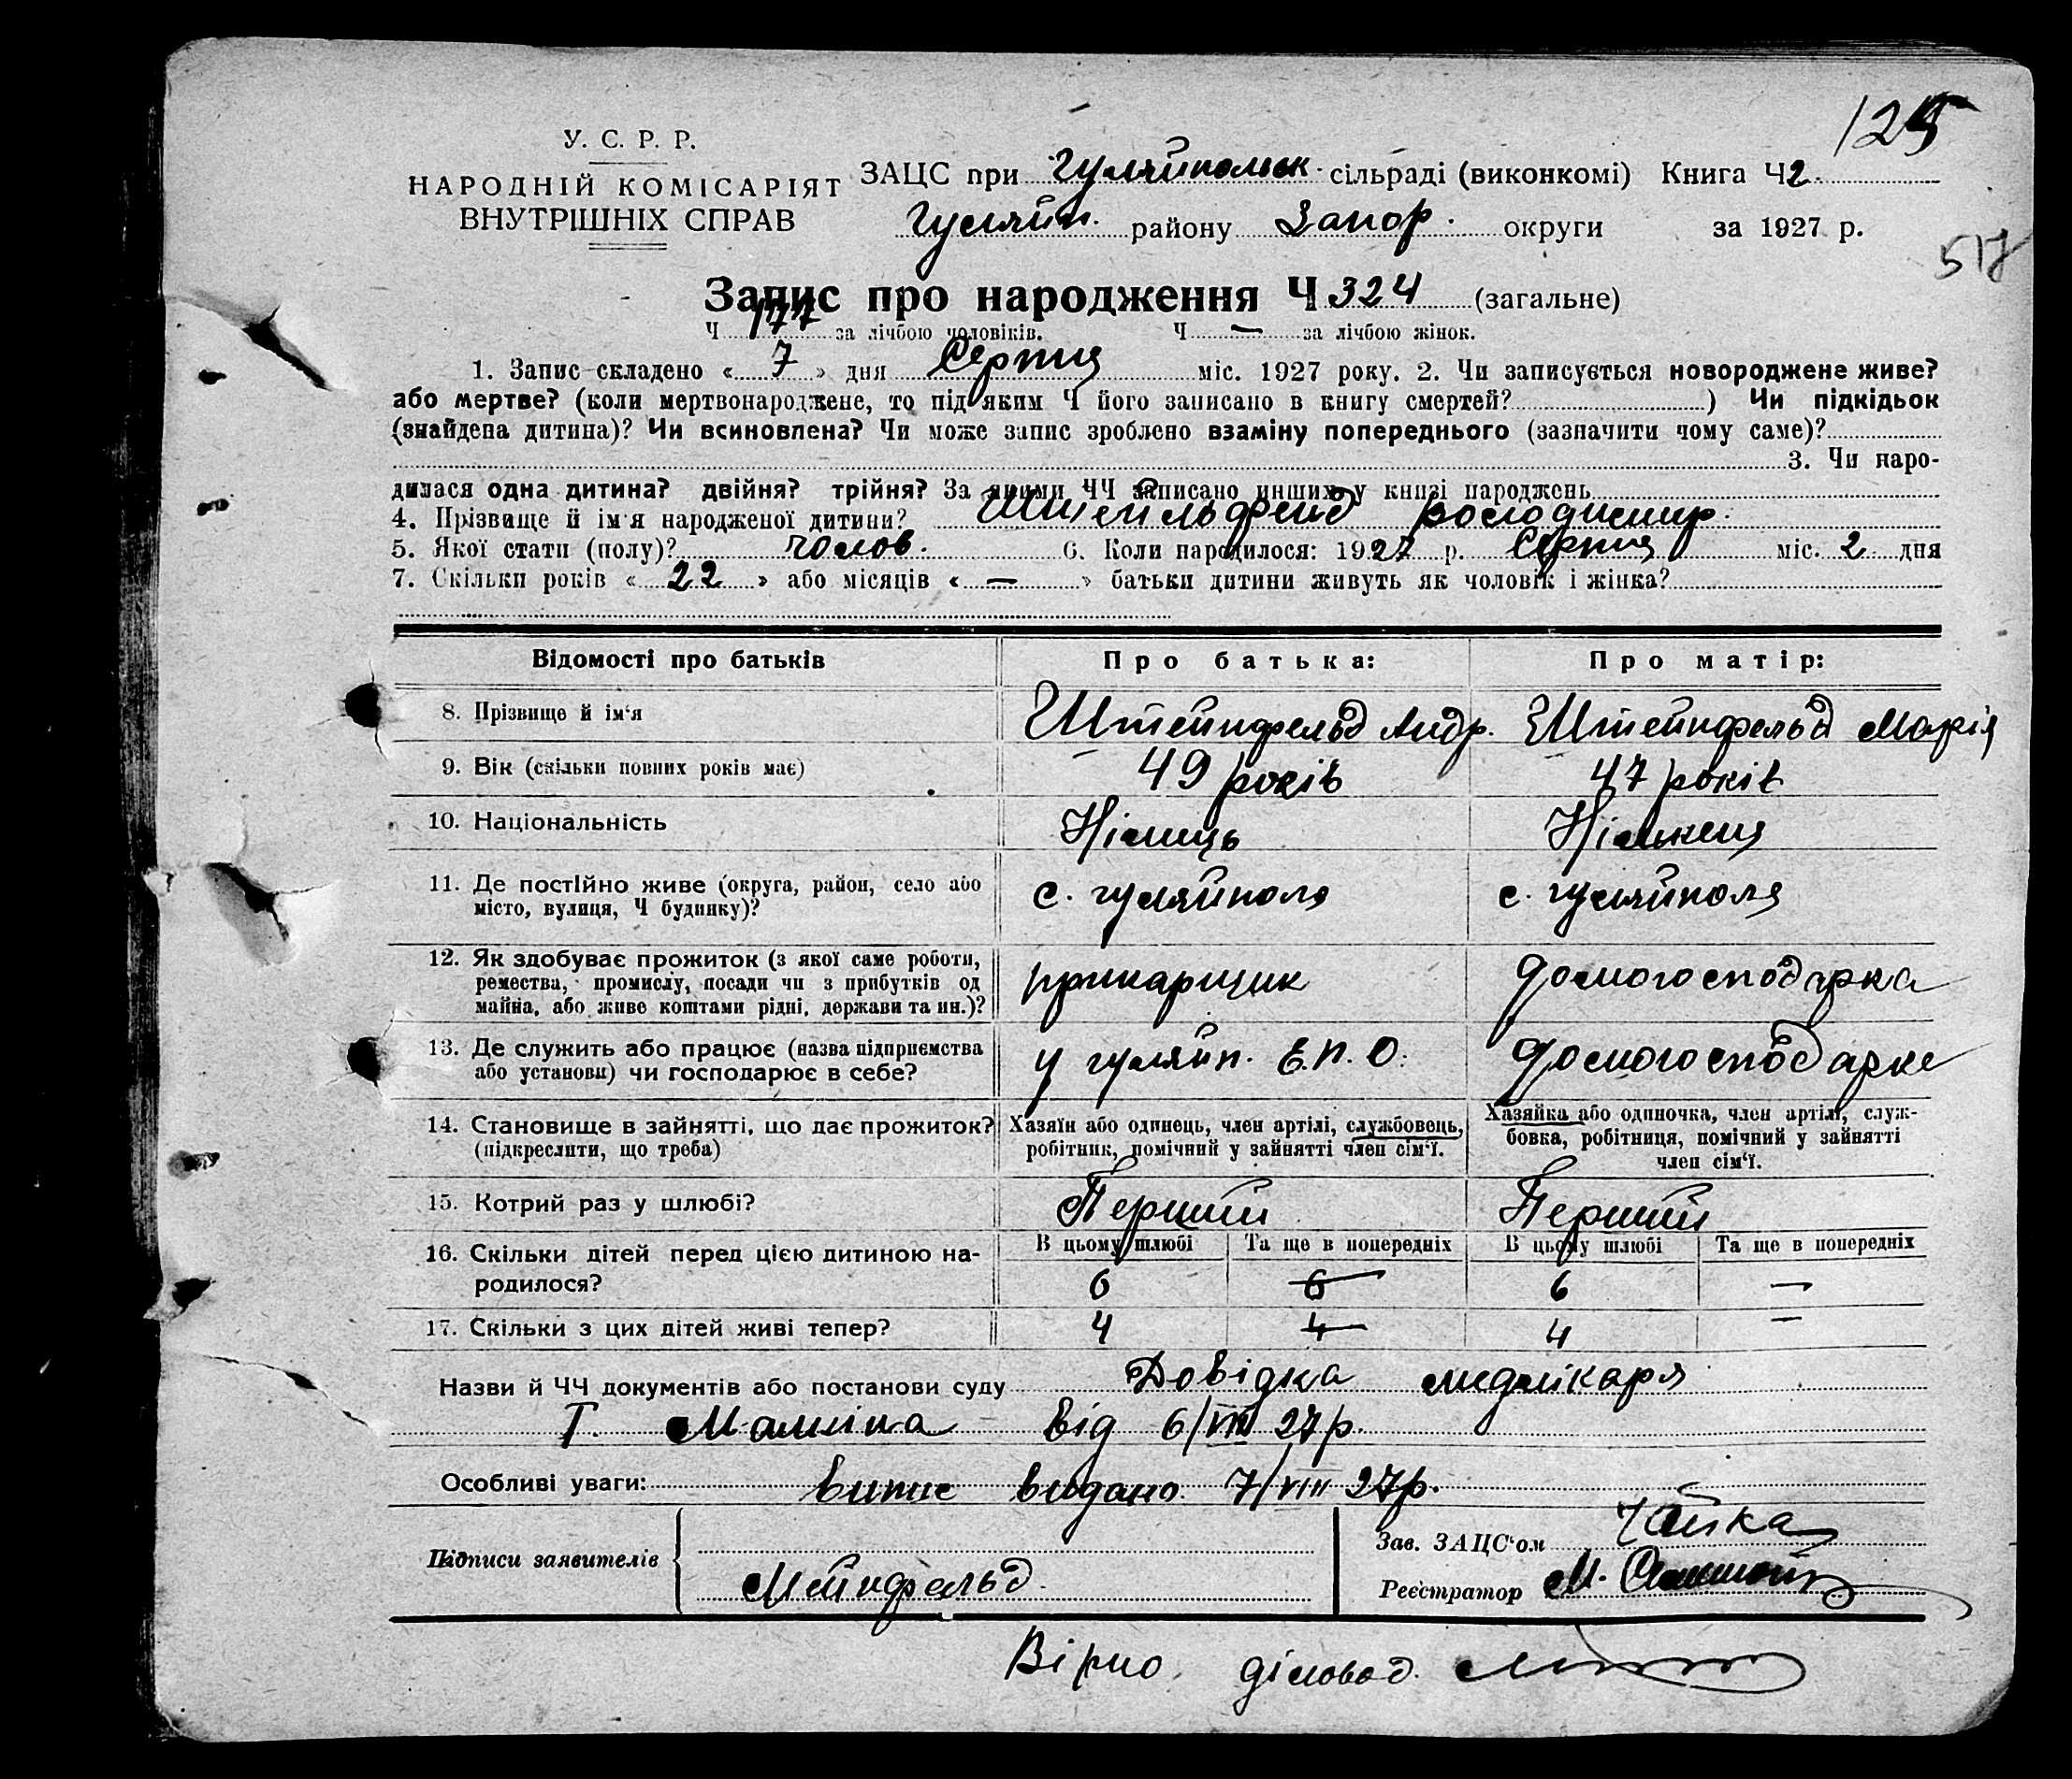 125
517
У. С. Р. Р.
НАРОДНІЙ КОМІСАРІЯТ
ВНУТРІШНІХ СПРАВ
ЗАЦС при Гуляйпольск. сільраді (виконкомі) Книга Ч 2
Гуляйп. району Запор. округи за 1927 р.
Запис про народження Ч 324 (загальне)
Ч 177 за лічбою чоловіків. Ч — за лічбою жінок.
1. Запис складено « 7 » дня Серпня міс. 1927 року. 2. Чи записується новороджене живе?
або мертве? (коли мертвонароджене, то під яким Ч його записано в книгу смертей? ) Чи підкідьок
(знайдена дитина)? Чи всиновлена? Чи може запис зроблено взаміну попереднього (зазначити чому саме)?
3. Чи наро-
дилася одна дитина? двійня? трійня? За якими ЧЧ записано инших у книзі народжень
4. Прізвище й ім'я народженої дитини? Володимир
5. Якої стати (полу)? чолов. 6. Коли народилося: 1927 р. Серпня міс. 2 дня
7. Скільки років « 22 » або місяців « — » батьки дитини живуть як чоловік і жінка?
Відомості про батьків Про батька: Про матір:
8. Прізвище й ім'я Штейнфельд Андр. Штейнфельд Марія
9. Вік (скільки повних років має) 49 років 47 років
10. Національність Німиць Німкеня
11. Де постійно живе (округа, район, село або
місто, вулиця, Ч будинку)? с. Гуляйполя с. Гуляйполя
12. Як здобуває прожиток (з якої саме роботи,
ремества, промислу, посади чи з прибутків од
майна, або живе коштами рідні, держави та ин.)? прикарщик домогосподарка
13. Де служить або працює (назва підприємства
або установи) чи господарює в себе? у Гуляйп. Е.П.О. домогосподарке
14. Становище в зайнятті, що дає прожиток?
(підкреслити, що треба)
Хазяїн або одинець, член артілі, службовець,
робітник, помічний у зайнятті член сім'ї.
Хазяйка або одиночка, член артілі, служ-
бовка, робітниця, помічний у зайнятті
член сім'ї.
15. Котрий раз у шлюбі? Перший Перший
16. Скільки дітей перед цією дитиною на-
родилося?
В цьому шлюбі Та ще в попередніх В цьому шлюбі Та ще в попередніх
6 6 6 —
17. Скільки з цих дітей живі тепер? 4 4 4 —
Назви й ЧЧ документів або постанови суду Довідка медлікаря
Т. від 6/VIII 27р.
Особливі уваги: витис видано 7/VIII 27р.
Підписи заявителів
Зав. ЗАЦС'ом Чайка
Реєстратор М.
Вірно діловод.